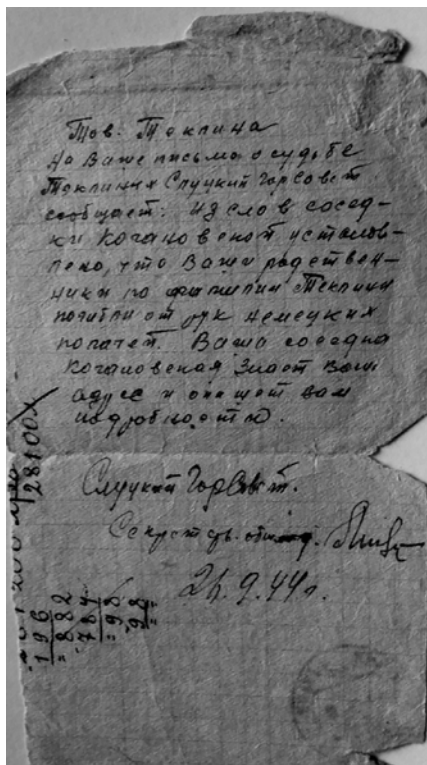 Тов. Теклина
на Ваше письмо о судьбе
Теклиных Слуцкий Горсовет
сообщает: из слов сосед-
ки Когановской установ-
лено, что Ваши родствен-
ники по фамилии Теклины
погибли от рук немецких
палачей. Ваша соседка
Когановская знает Ваш
адрес и опишет вам
подробности.
Слуцкий Горсовет.
Секретарь
24.9.44г.
28100
196
882
784
98
98